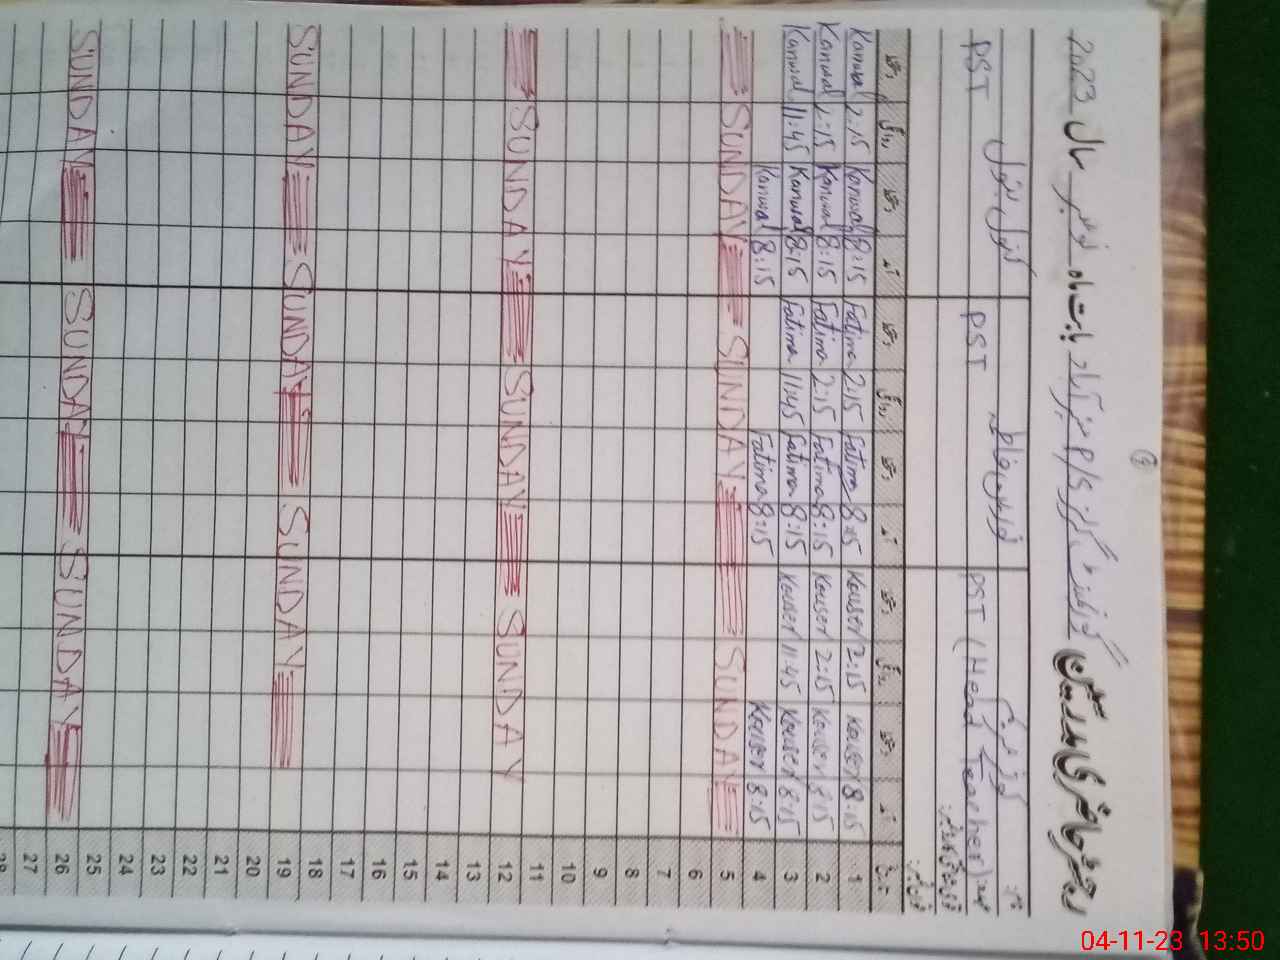 رجسٹر حاضری مدرسین گورنمنٹ گرلز P/S آباد بابت ماہ نومبر سال 2023
PST (Head Teacher) PST PST
تاریخ آمد دستخط روانگی دستخط آمد دستخط روانگی دستخط آمد دستخط روانگی دستخط
1 8:15 Kouser 2:15 Kouser 8:15 Fatima 2:15 Fatima 8:15 Kanwal 2:15 Kanwal
2 8:15 Kouser 2:15 Kouser 8:15 Fatima 2:15 Fatima 8:15 Kanwal 2:15 Kanwal
3 8:15 Kouser 11:45 Kouser 8:15 Fatima 11:45 Fatima 8:15 Kanwal 11:45 Kanwal
4 8:15 Kouser 8:15 Fatima 8:15 Kanwal
5 SUNDAY SUNDAY SUNDAY
6
7
8
9
10
11
12 SUNDAY SUNDAY SUNDAY
13
14
15
16
17
18
19 SUNDAY SUNDAY SUNDAY
20
21
22
23
24
25
26 SUNDAY SUNDAY SUNDAY
27
28
04-11-23 13:50